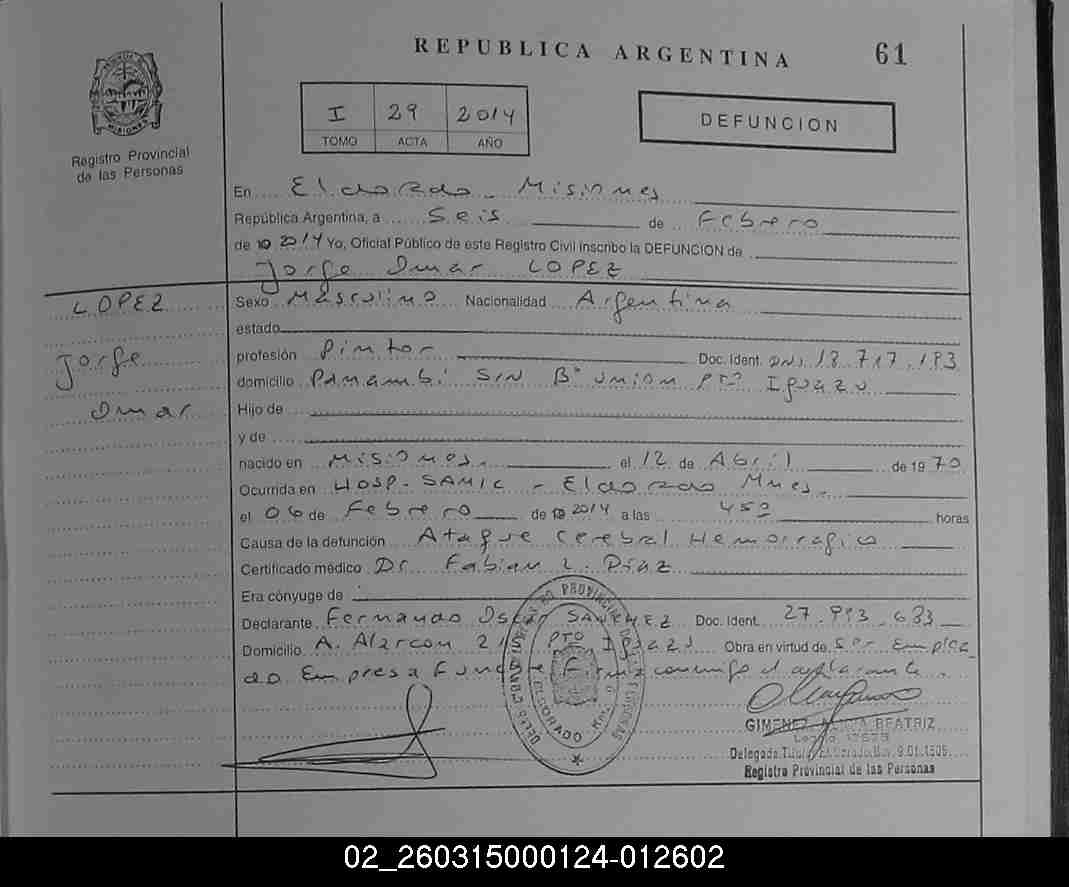 REPUBLICA ARGENTINA
61
MISIONES
Registro Provincial
de las Personas
I 29 2014
TOMO ACTA AÑO
DEFUNCION
En Eldorado - Misiones
República Argentina, a Seis de Febrero
de 19 2014 Yo, Oficial Público de este Registro Civil inscribo la DEFUNCION de
Jorge Omar LOPEZ
LOPEZ
Jorge
Omar
Sexo Masculino Nacionalidad Argentina
estado
profesión Pintor Doc. Ident. DNI. 18.717.193
domicilio Panambí S/N Bº Union Pto Iguazu
Hijo de
y de
nacido en Misiones. el 12 de Abril de 1970
Ocurrida en HOSP. SAMIC - Eldorado Mnes.
el 06 de Febrero de 19 2014 a las 450 horas
Causa de la defunción Ataque Cerebral Hemorragico
Certificado médico Dr. Fabian L. Diaz
Era cónyuge de
Declarante Fernando Oscar SANCHEZ Doc. Ident. 27.993.633
Domicilio A. Alarcon 21 PTO Iguazu Obra en virtud de Ser Emplea
do Empresa Firma conmigo el
ELDORADO
GIMENEZ BEATRIZ
Registro Provincial de las Personas
02_260315000124-012602